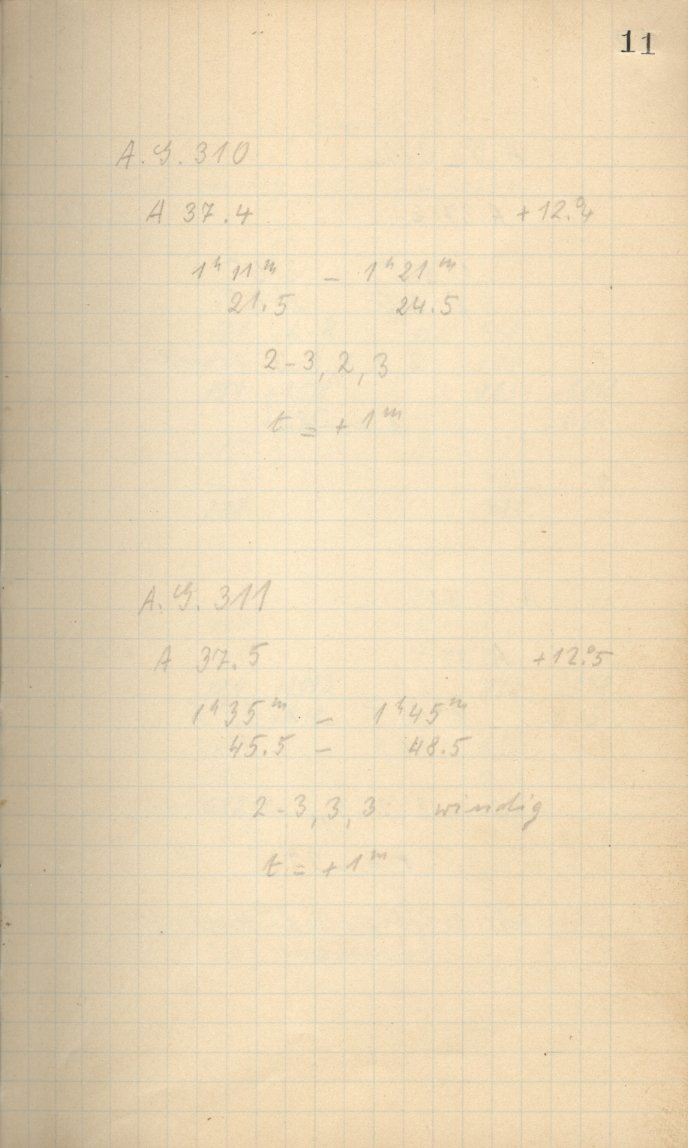 11
A.G. 310
A 37.4 +12.°4
1ʰ 11ᵐ – 1ʰ 21ᵐ
21.5 24.5
2-3, 2, 3
t = + 1ᵐ
A.G. 311
A 37.5 +12.°5
1ʰ 35ᵐ – 1ʰ 45ᵐ
45.5 – 48.5
2-3, 3, 3 windig
t = + 1ᵐ